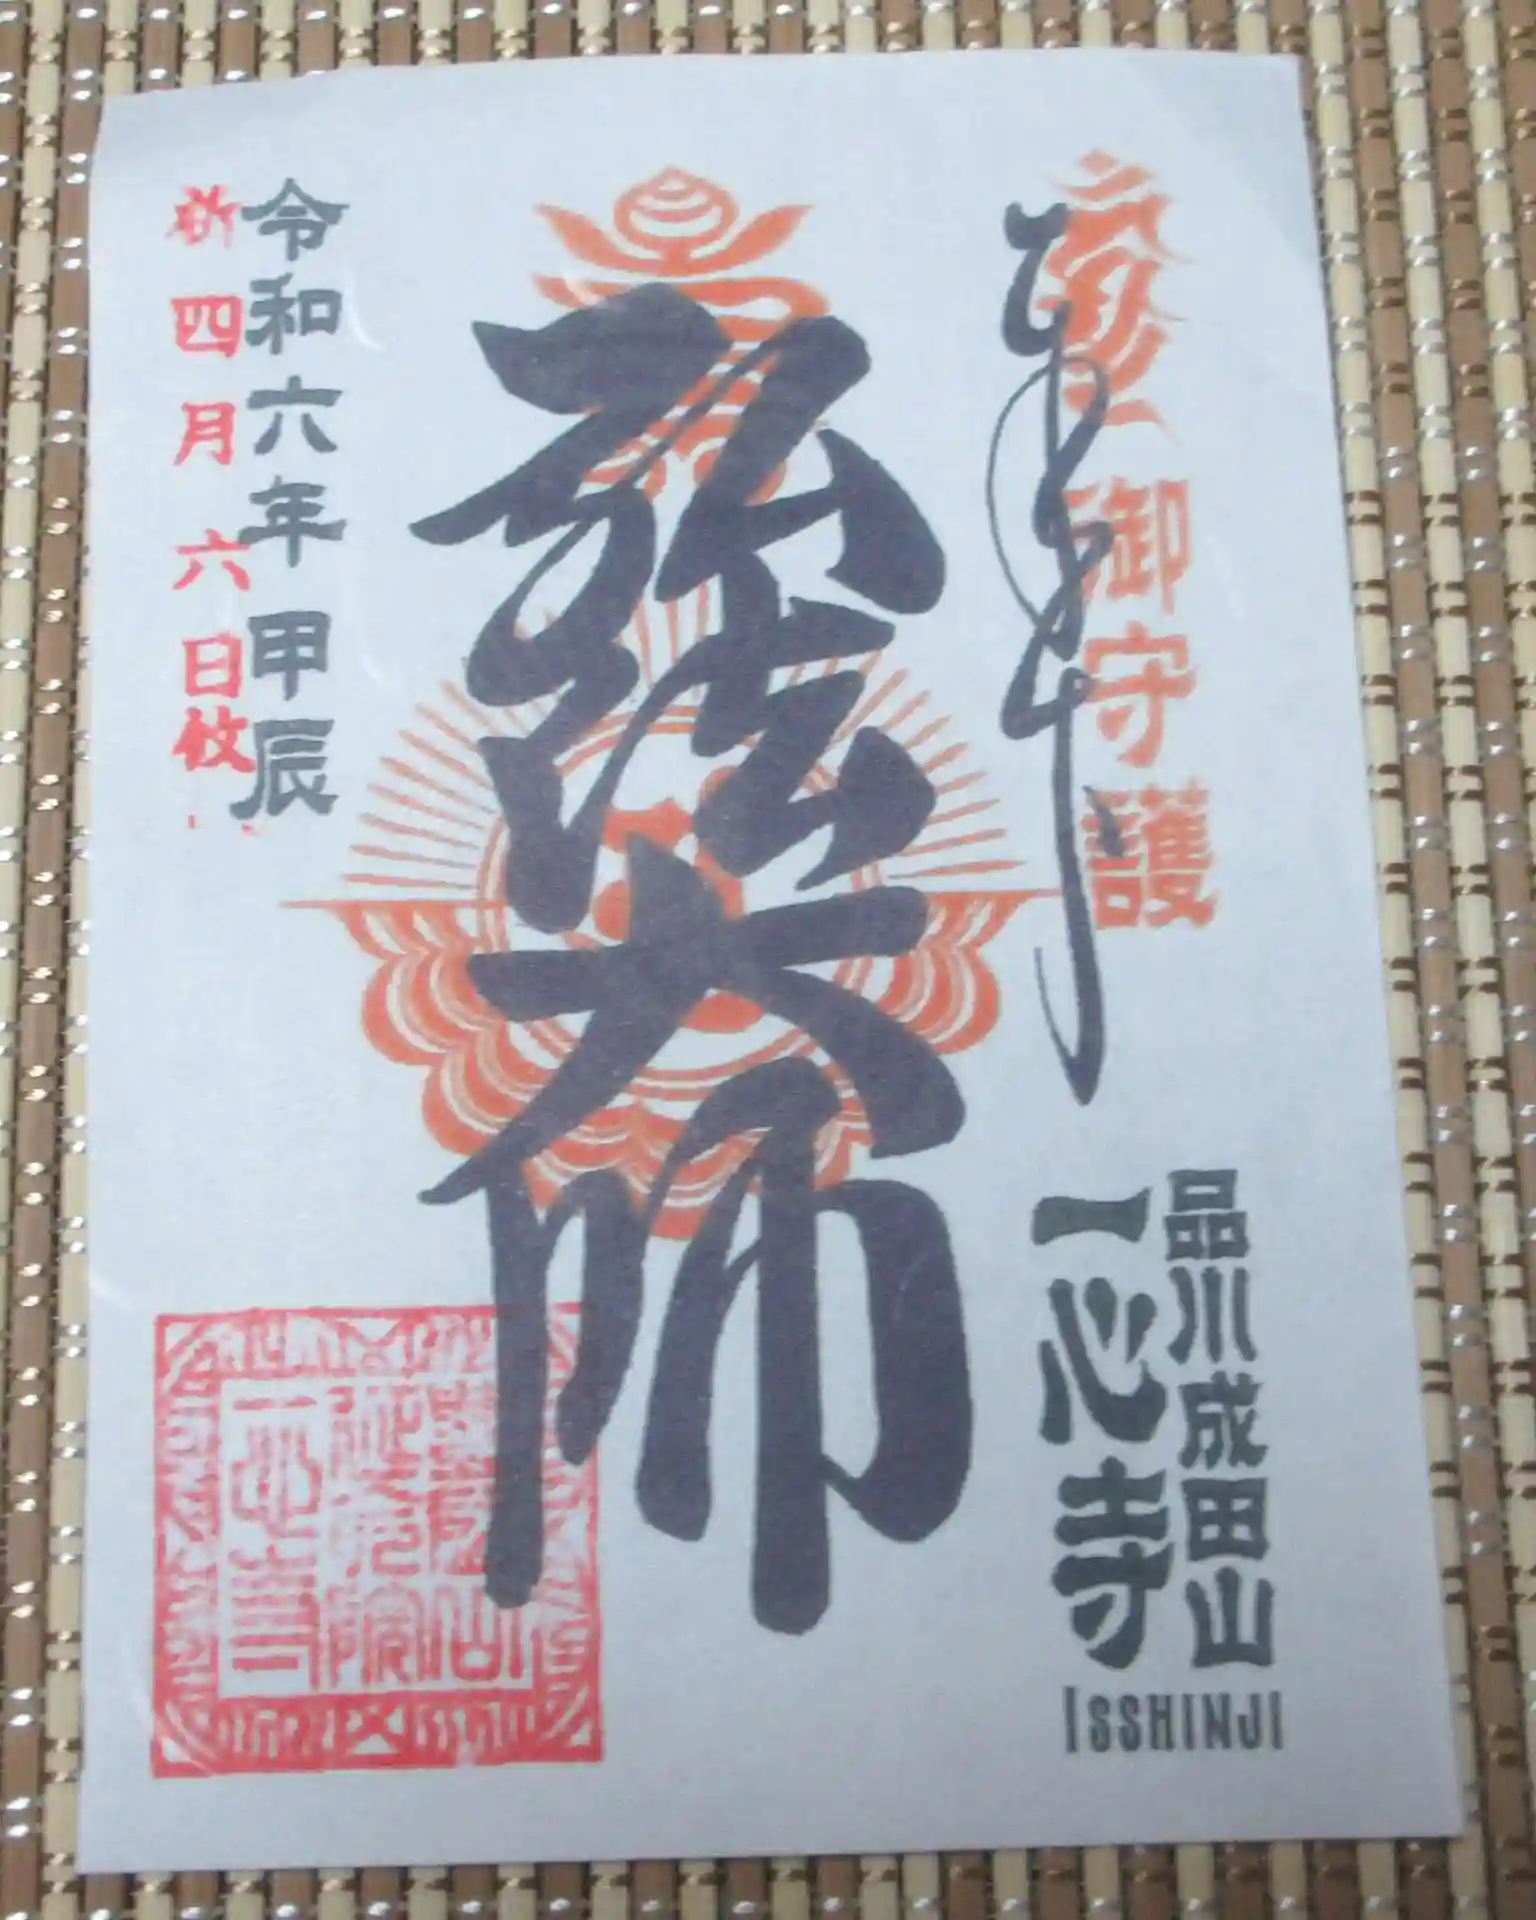 奉拝
御守護
品川成田山
一心寺
ISSHINJI
弘法大師
令和六年甲辰
四月六日
一心寺